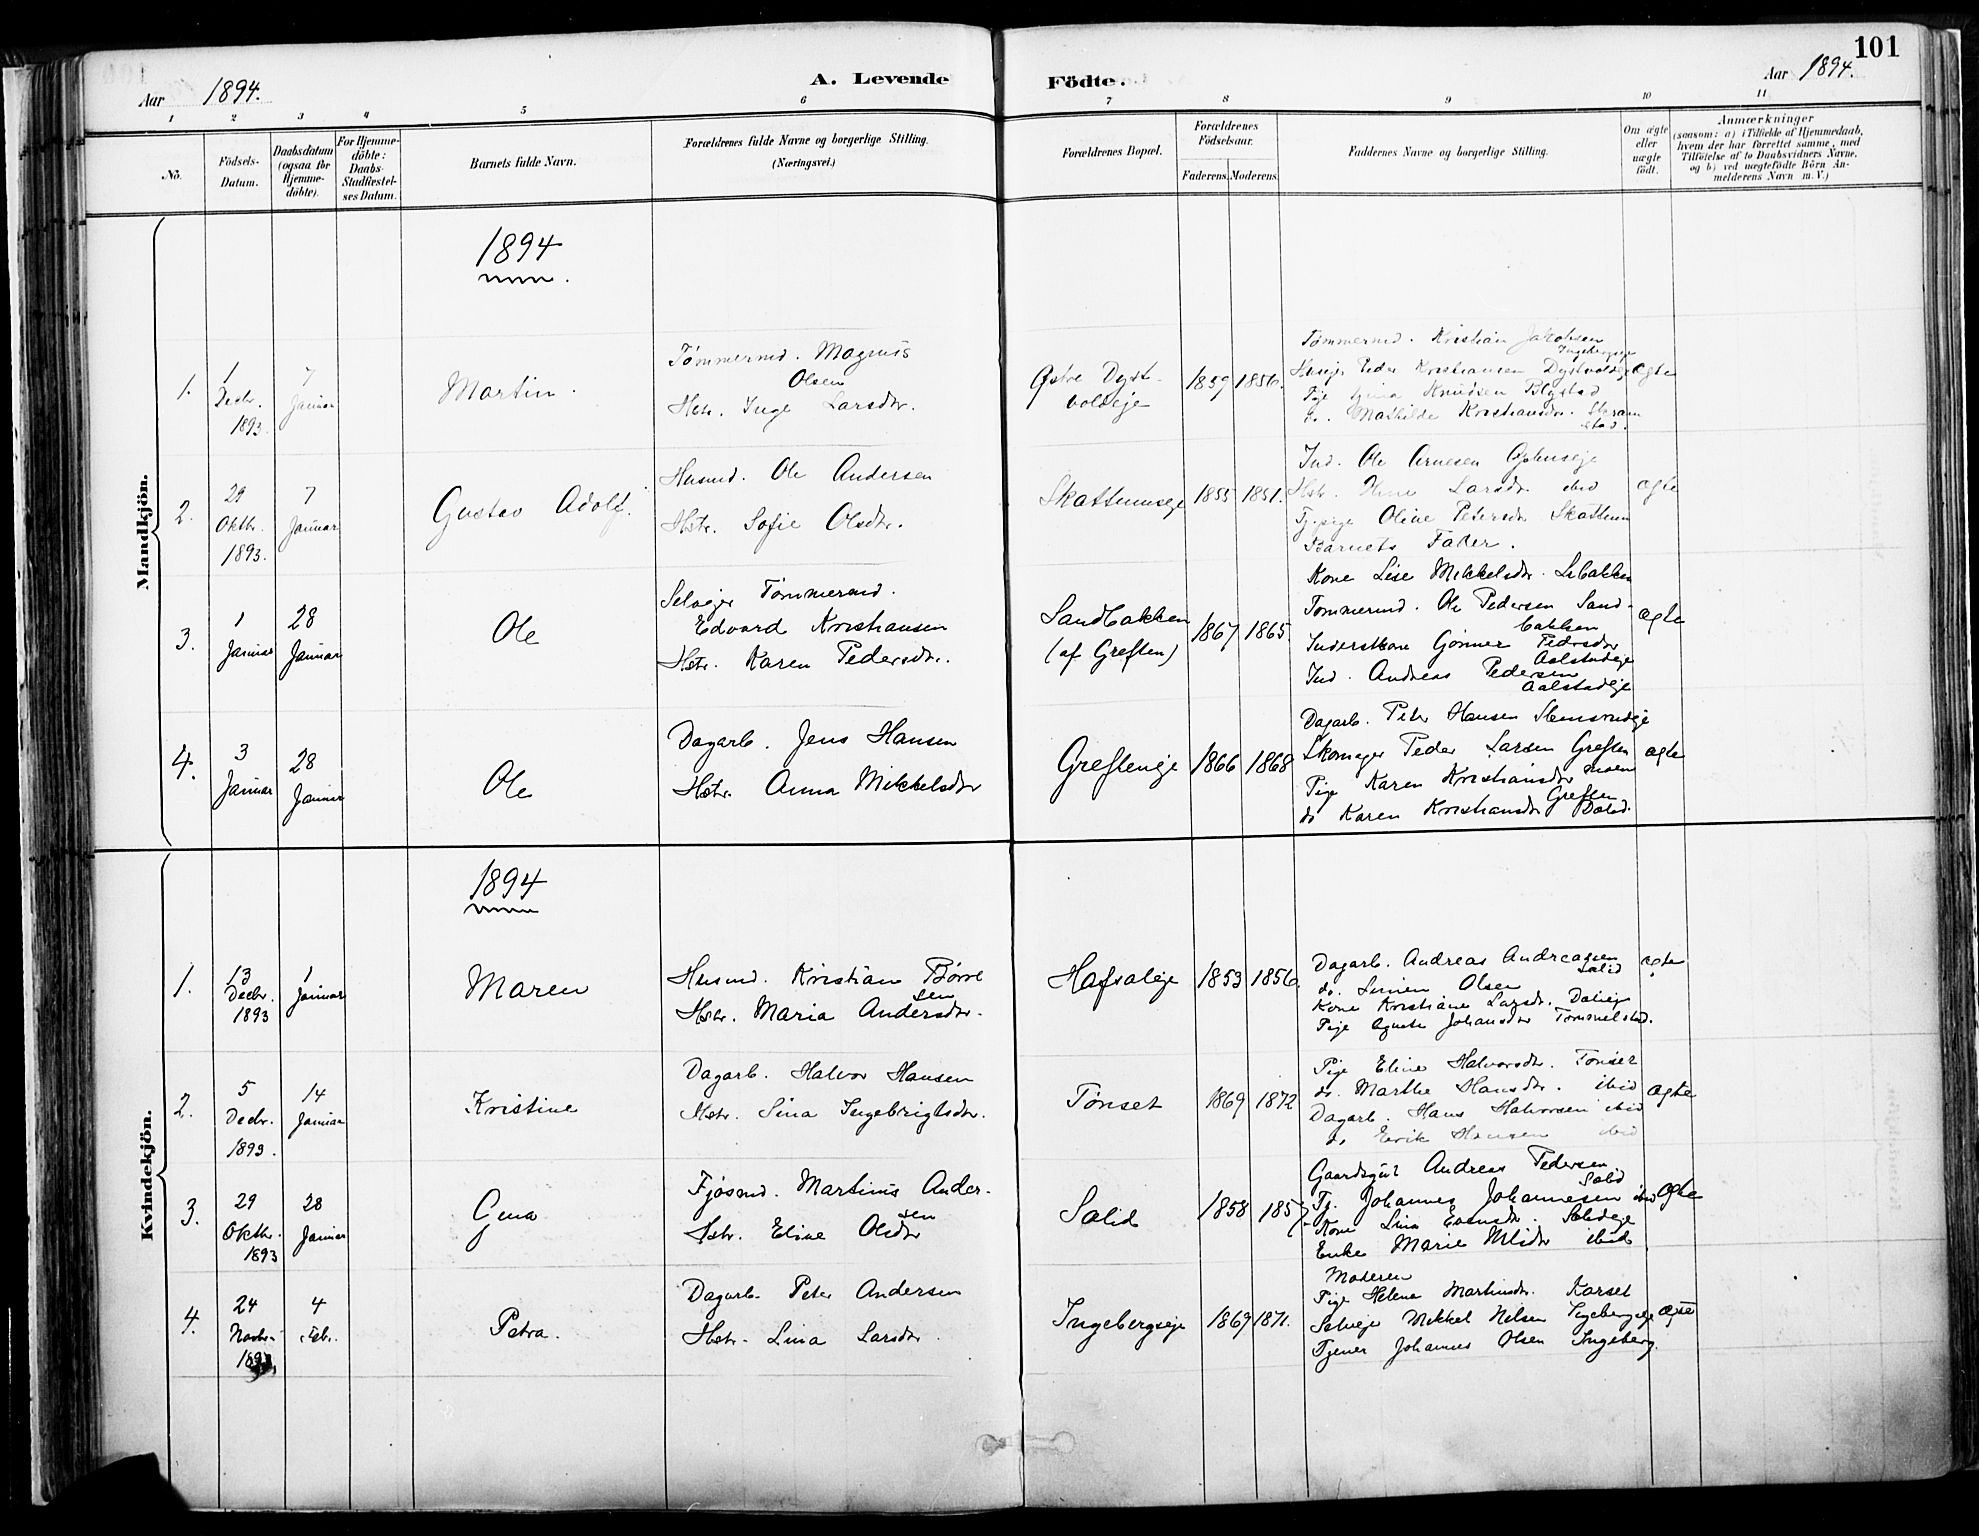 101
Aar 1894.
A. Levende Födte.
Aar 1894.
1 2 3 4 5 6 7 8 9 10 11
No.
Födsels-Datum.
Daabsdatum (ogsaa for Hjemme-döbte).
For Hjemme-döbte: Daabs-Stadfæstel-ses Datum.
Barnets fulde Navn.
Forældrenes fulde Navne og borgerlige Stilling. (Næringsvei.)
Forældrenes Bopæl.
Forældrenes Födselsaar.
Faderens. Moderens.
Faddernes Navne og borgerlige Stilling.
Om ægte eller uægte født.
Anmærkninger
(saasom: a) i Tilfælde af Hjemmedaab, hvem der har forrettet samme, med Tilföielse af to Daabsvidners Navne, og b) ved uægtefödte Börn Anmelderens Navn m. V.)
Mandkjön.
1894
1. 1 Decbr. 1893. 7 Januar
Martin.
Tømmermd. Magnus Olsen
Hstr. Inge Larsdtr.
Østre Dyst-voldeje
1859 1856.
Tømmermd. Kristian Jakobsen Ingebergseje
Husejer Peder Kristiansen Dystvoldeje
Pige Gina Knudsen Blystad
do. Mathilde Kristiansdtr. Skramstad.
ægte
2. 29 Oktbr. 1893. 7 Januar
Gustav Adolf.
Husmd. Ole Andersen
Hstr. Sofie Olsdtr.
Skattumseje
1855 1851.
Ind. Ole Arnesen Ophuseje
Hstr. Larsdtr. ibid
Tj.pige Oline Petersdtr Skattum
Barnets Fader.
ægte
3. 1 Januar 28 Januar
Ole
Selvejer Tømmermd.
Edvard Kristiansen
Hstr. Karen Pedersdtr.
Sandbakken
(af Greften)
1867 1865.
Kone Lise Mikkelsdtr.
Tømmermd. Ole Pedersen Sand-bakken
Inderstkone Gønner Pedersdtr Aalstadeje
Ind. Andreas Pedersen Aalstadeje
ægte
4. 3 Januar 28 Januar
Ole
Dagarb. Jens Hansen
Hstr. Anna Mikkelsdtr
Grefteneje
1866 1868
Dagarb. Peter Hansen Stensrudeje
Skomager Peder Larsen Greften
Pige Karen Kristiansdtr Moen Greften
do Karen Kristiansdtr
ægte
Kvindekjön.
1894
1. 13 Decbr. 1893 1 Januar
Maren
Husmd. Kristian Børre sen
Hstr. Maria Andersdtr.
Hafsaleje
1853 1856.
Dagarb. Andreas Andreasen Solid
do. Simen Olsen
Kone Kristiane Larsdtr.
Pige Agnete Johansdtr Tommelstad.
ægte
2. 5 Decbr. 1893. 14 Januar
Kristine
Dagarb. Halvor Hansen
Hstr. Sina Ingebrigtsdtr.
Tønset
1869 1872
Pige Eline Halvorsdtr. Tønset
do. Marthe Hansdtr. ibid
Dagarb. Hans Halvorsen ibid
do Erik Hansen ibid
ægte
3. 29 Oktbr. 1893 28 Januar
Gina
Fjøsmd. Martinus Ander-sen
Hstr. Eline Olsdtr
Solid
1858 1857
Gaardsgut Andreas Pedersen Solid
Tj. Johannes Johannesen ibid
Kone Lina Evensdtr. Solideje
Enke Marie Nilsdtr ibid
ægte
4. 24 Novbr. 1893. 4 Febr.
Petra.
Dagarb. Peter Andersen
Hstr. Lina Larsdtr.
Ingebergseje
1869 1871.
Moderen
Pige Helene Martinsdtr. Karset
Selveje Mikkel Nilsen Ingebergseje
Tjener Johannes Olsen Ingeberg.
ægte